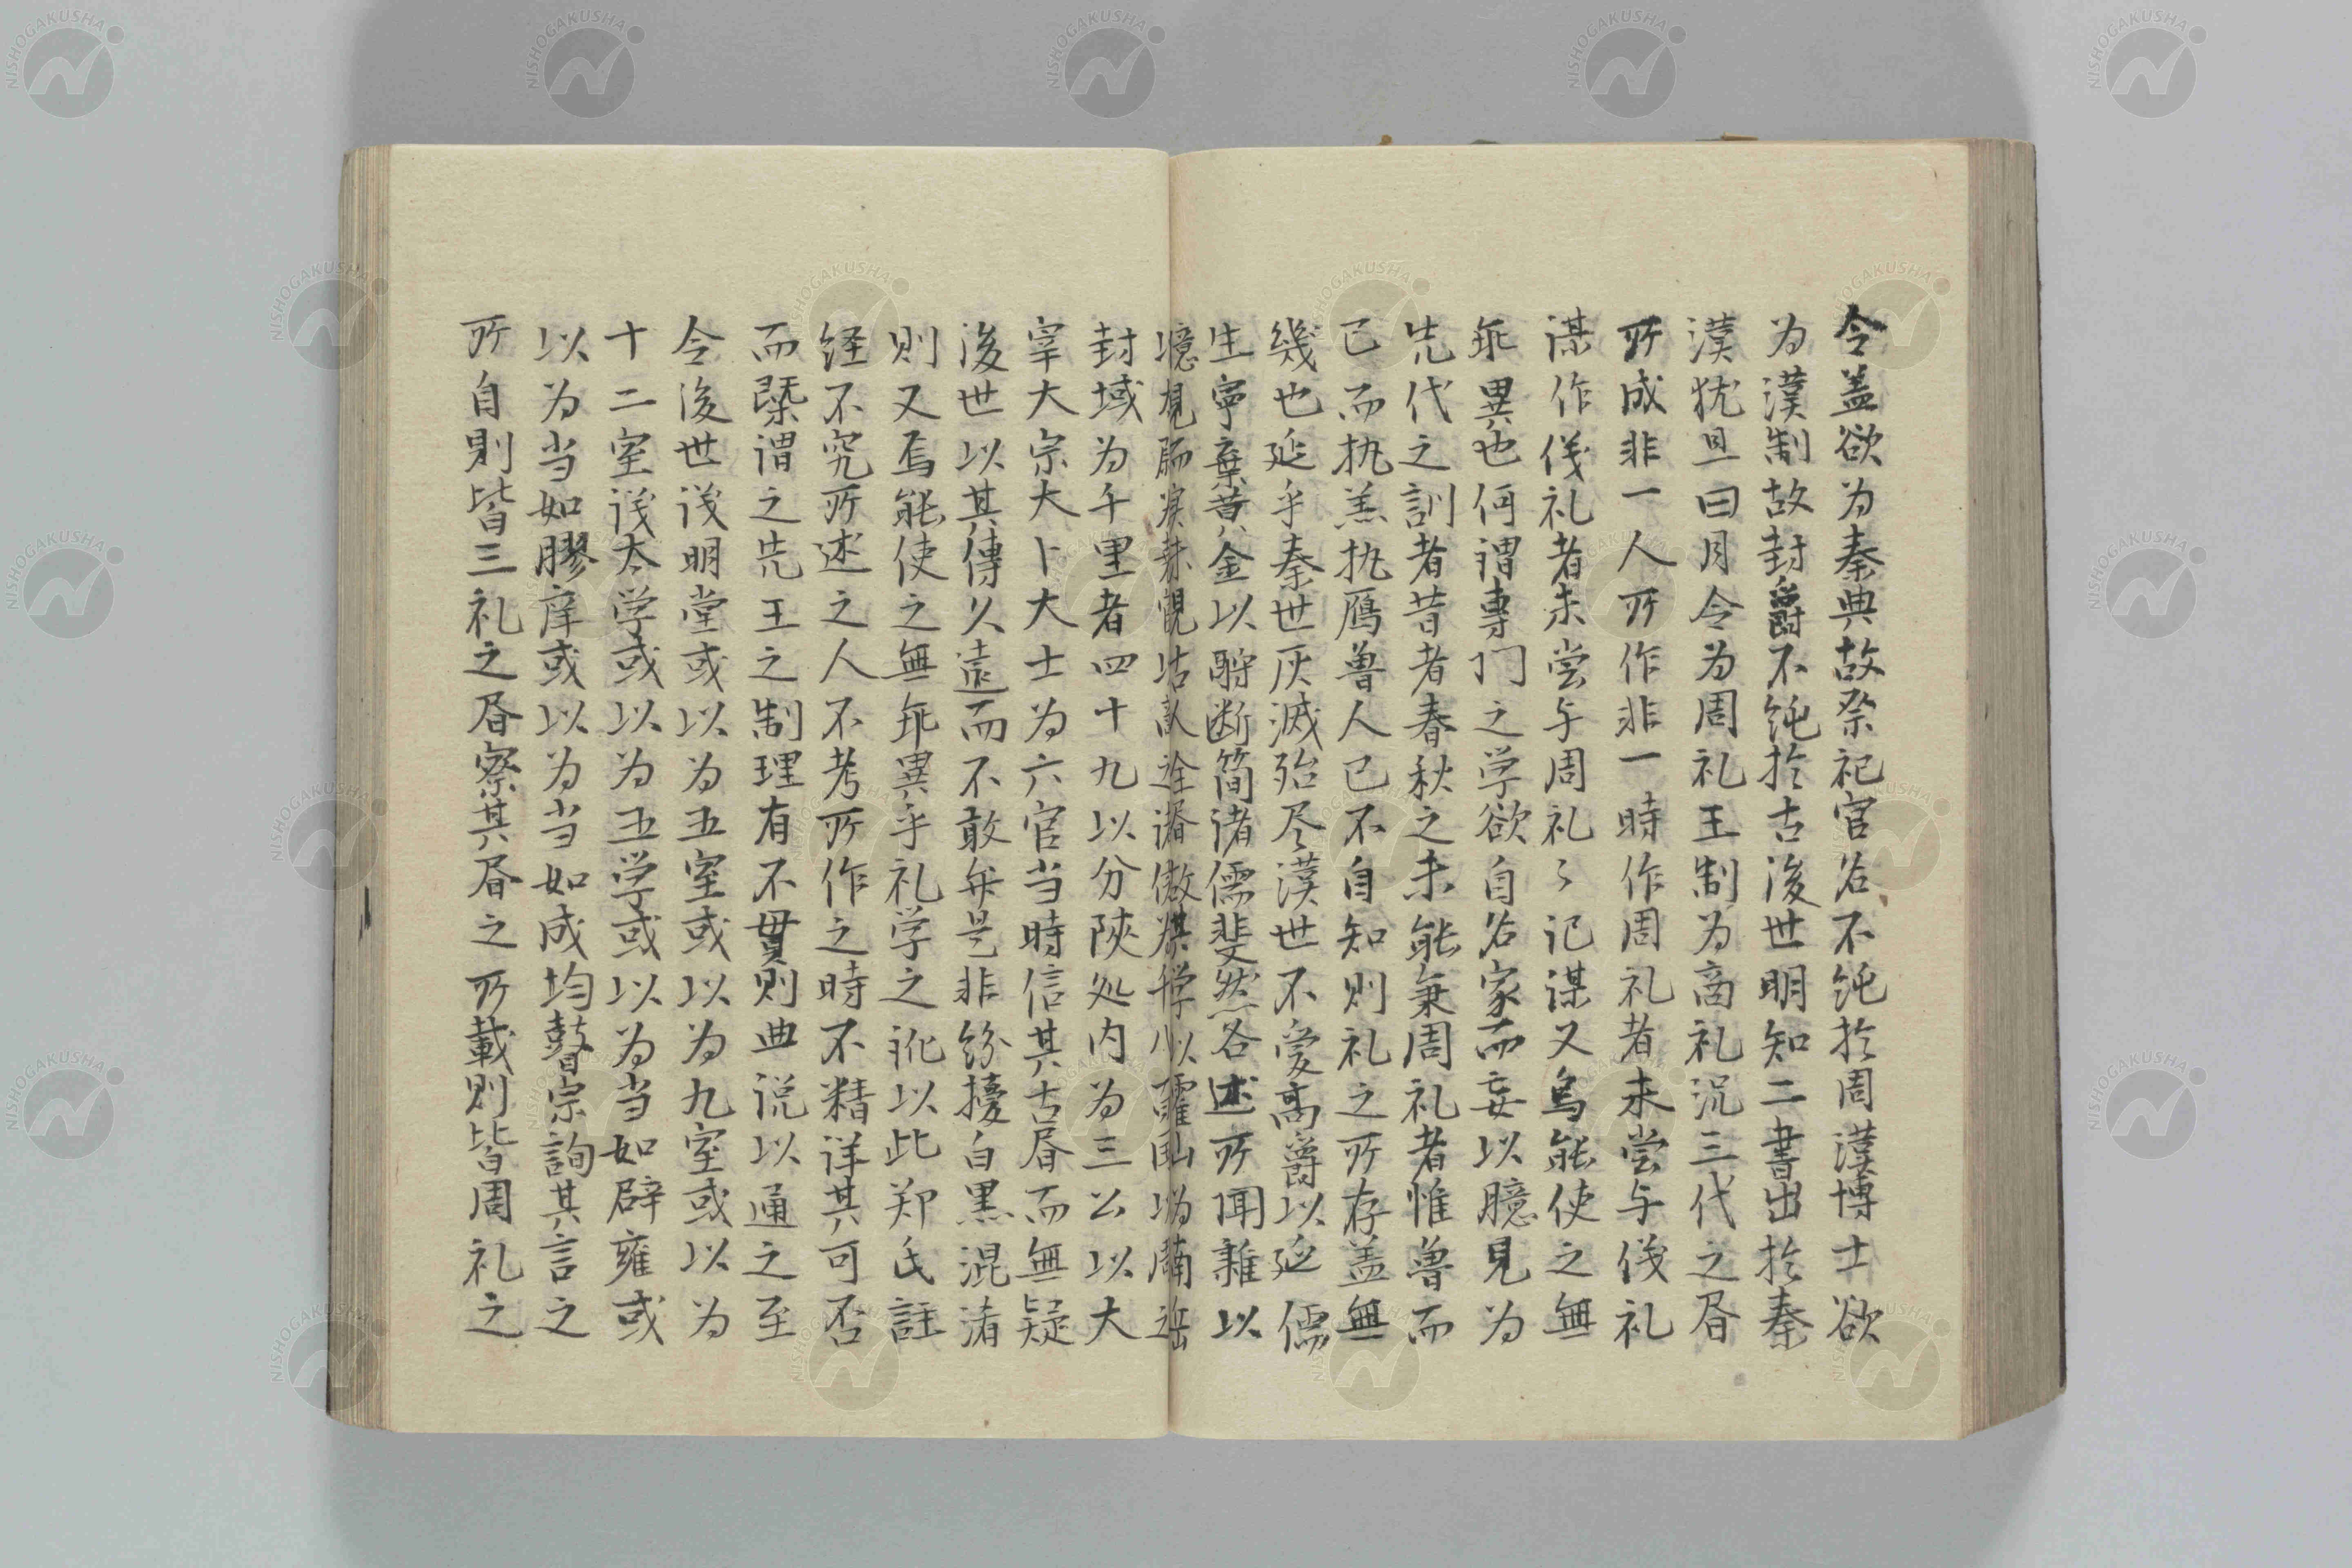 令盖欲为秦典故祭祀官名不純於周漢博士欲
为漢制故封爵不純於古後世明知二書出於秦
漢犹且曰月令为周礼王制为商礼沉三代之㫺
所成非一人所作非一時作周礼者未尝与仪礼
谋作仪礼者未尝与周礼々记谋又烏能使之無
乖異也何謂専门之学欲自名家而妄以臆見为
先代之訓者昔者春秋之未能兼周礼者惟鲁而
已而执羔执鴈鲁人已不自知则礼之所存盖無
幾也延乎秦世灰滅殆尽漢世不愛高爵以延儒
生寧棄黄金以酧断简诸儒斐然各述所闻雑以
封域为千里者四十九以分陝处内为三公以大
宰大宗大卜大士为六官当時信其古㫺而無疑
後世以其傳久遠而不敢弁是非紛擾白黒混淆
则又焉能使之無乖異乎礼学之讹以此郑氏註
经不究所述之人不考所作之時不精详其可否
而槩谓之先王之制理有不貫则典说以通之至
今後世议明堂或以为五室或以为九室或以为
十二室议太学或以为五学或以为当如辟雍或
以为当如膠庠或以为当如成均瞽宗詢其言之
所自则皆三礼之㫺察其㫺之所載则皆周礼之
NISHOGAKUSHA